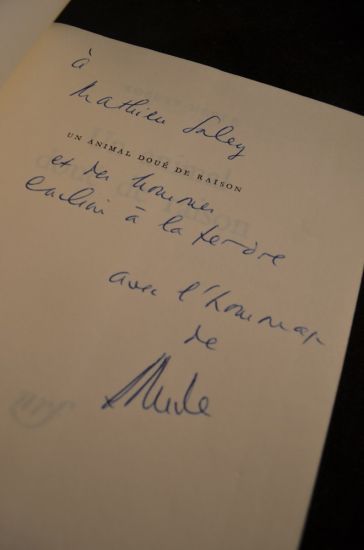 à
Mathieu Galey
UN ANIMAL DOUÉ DE RAISON
et des hommes
enclins à la perdre
avec l'hommage
de
Merle